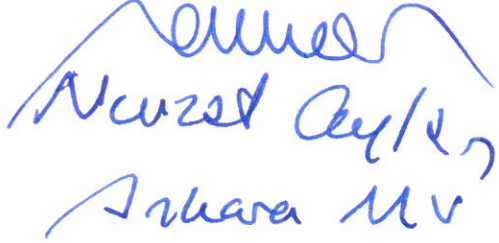 Nevzat Ceylan
Ankara Mv